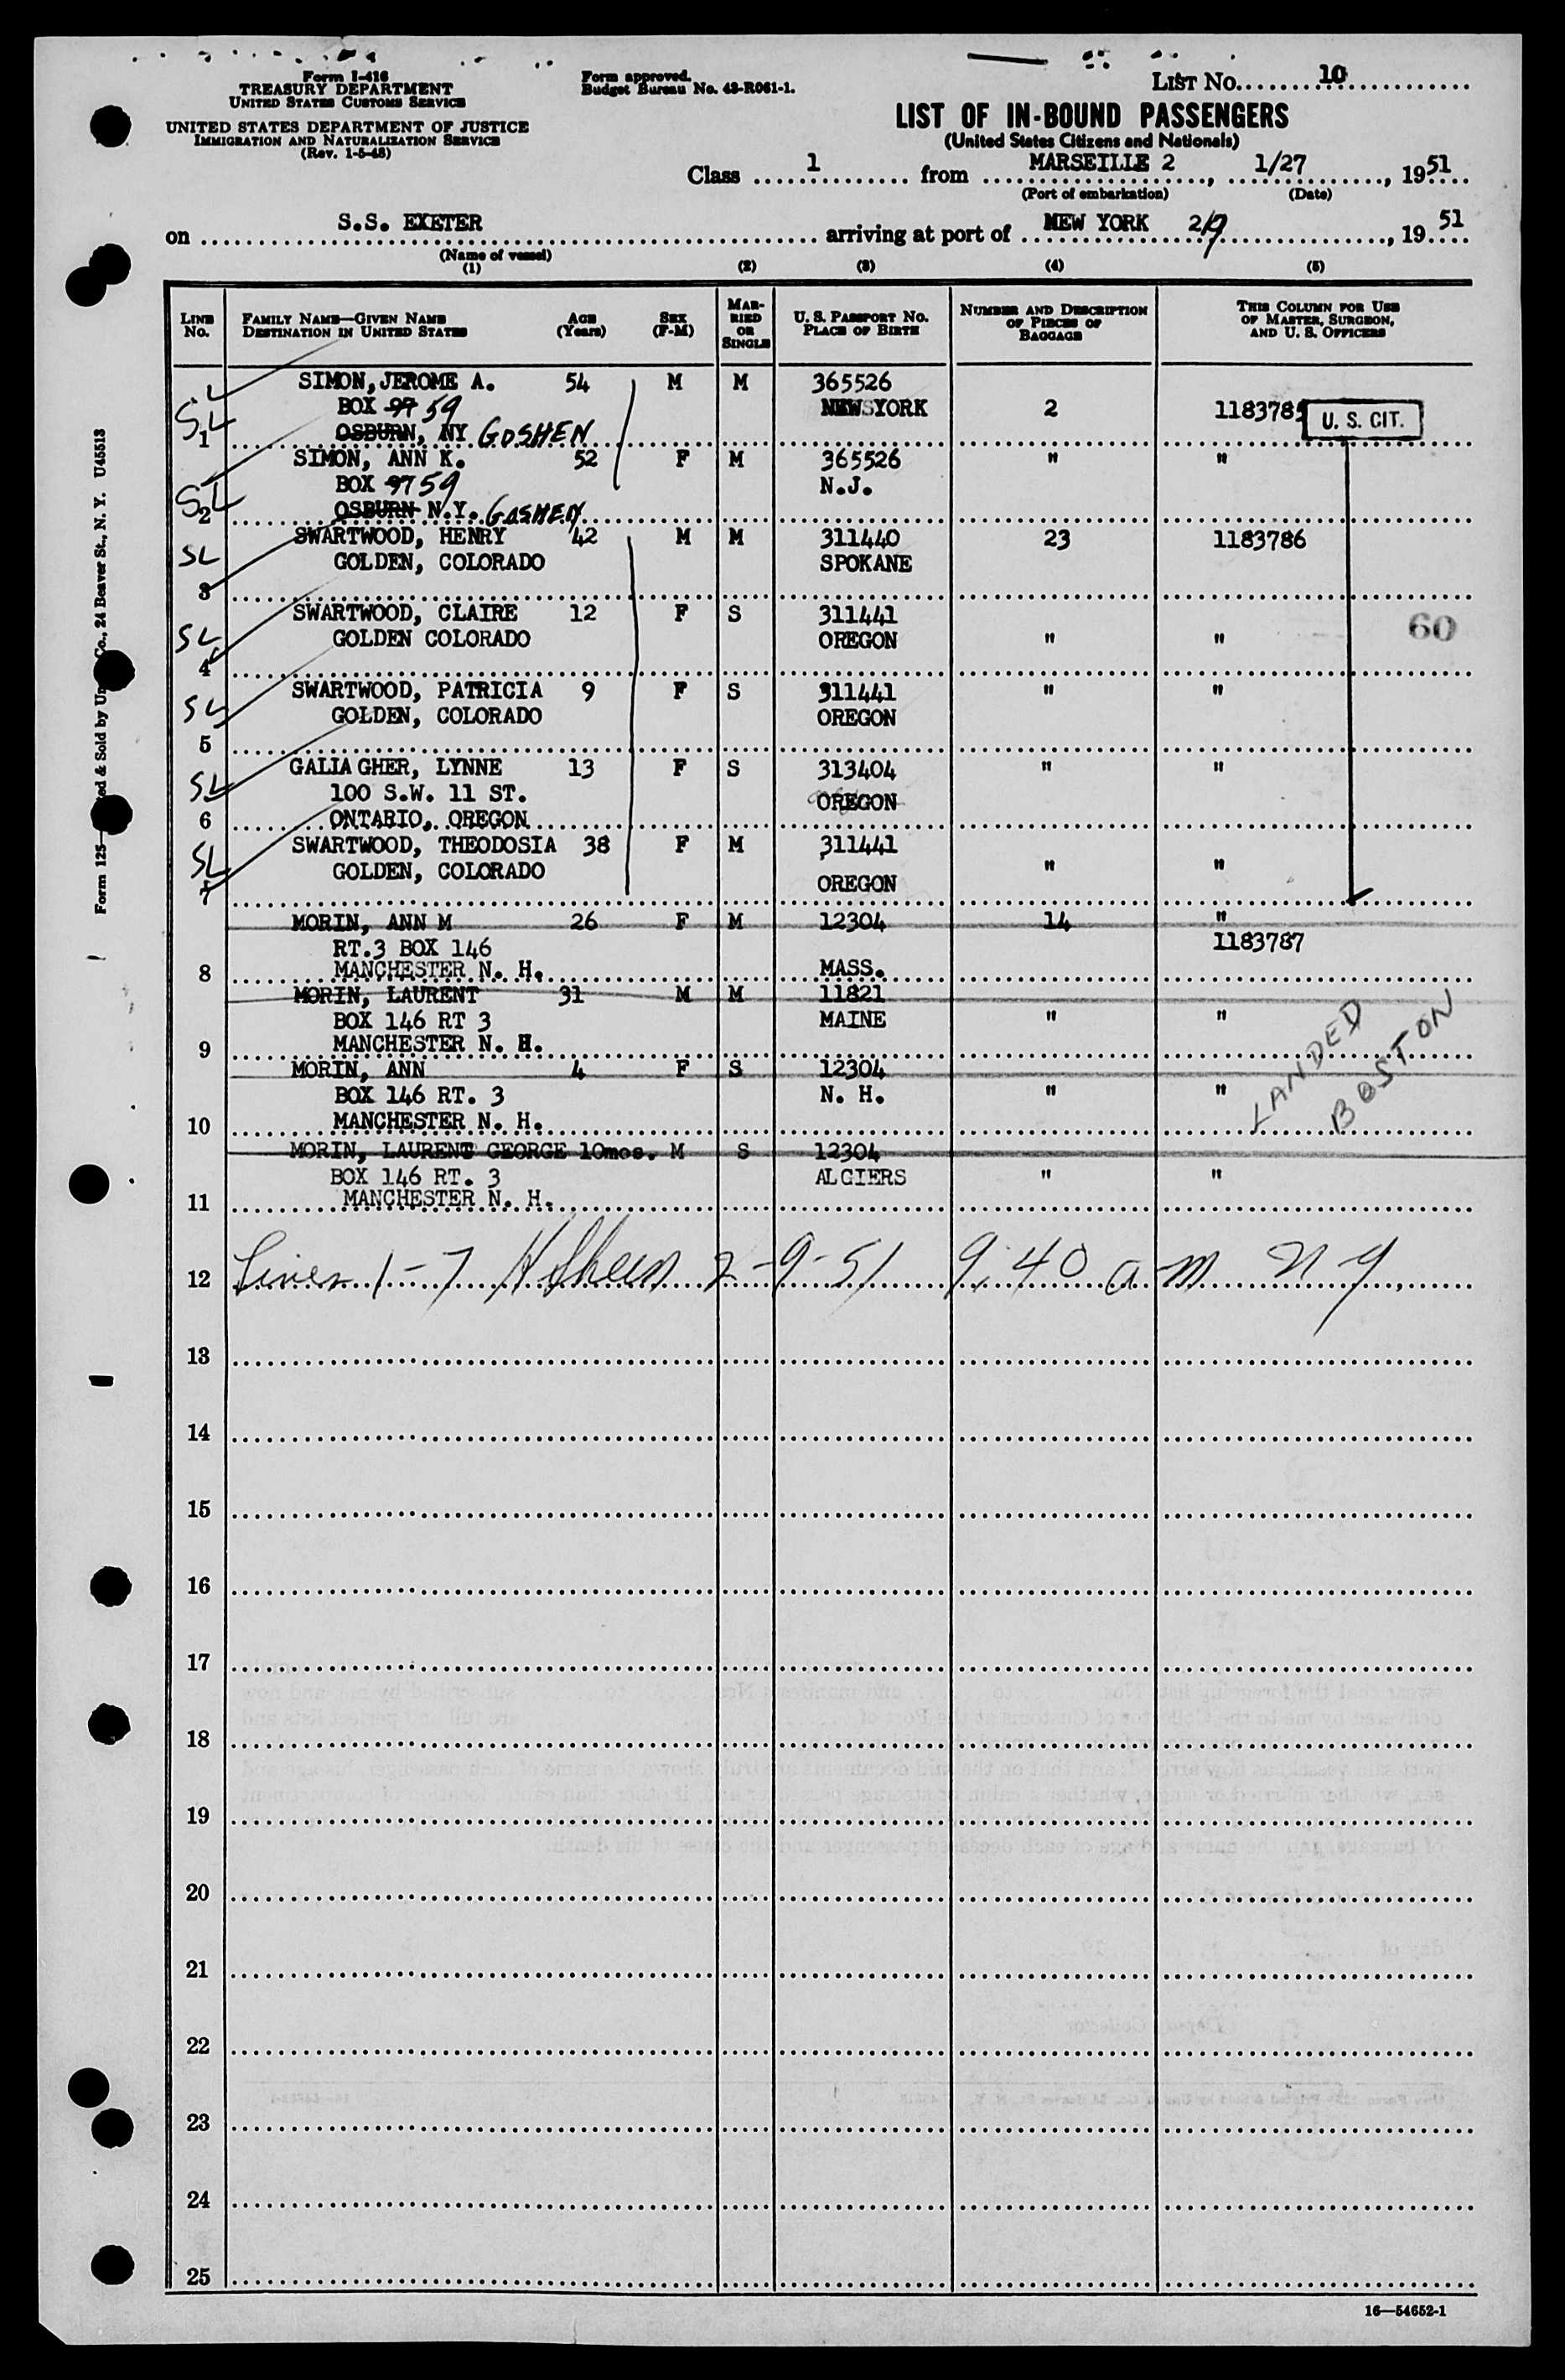 Form I-416
TREASURY DEPARTMENT
UNITED STATES CUSTOMS SERVICE
UNITED STATES DEPARTMENT OF JUSTICE
IMMIGRATION AND NATURALIZATION SERVICE
(Rev. 1-5-48)
Form approved.
Budget Bureau No. 43-R061-1.
LIST No. 10
LIST OF IN-BOUND PASSENGERS
(United States Citizens and Nationals)
Class 1 from MARSEILLE 2, 1/27, 1951
(Port of embarkation) (Date)
on S.S. EXETER arriving at port of NEW YORK 2/9, 1951
(Name of vessel)
(1) (2) (3) (4) (5)
LINE No. FAMILY NAME—GIVEN NAME DESTINATION IN UNITED STATES AGE (Years) SEX (F-M) MARRIED OR SINGLE U. S. PASSPORT NO. PLACE OF BIRTH NUMBER AND DESCRIPTION OF PIECES OF BAGGAGE THIS COLUMN FOR USE OF MASTER, SURGEON, AND U. S. OFFICERS
SIMON, JEROME A. 54 M M 365526
SL BOX 97 59 NEW YORK 2 118378 U. S. CIT.
1 OSBURN, NY GOSHEN
SIMON, ANN K. 52 F M 365526 " "
SL BOX 97 59 N.J.
2 OSBURN N.Y. GOSHEN
SWARTWOOD, HENRY 42 M M 311440 23 1183786
SL GOLDEN, COLORADO SPOKANE
3
SWARTWOOD, CLAIRE 12 F S 311441
SL GOLDEN COLORADO OREGON " " 60
4
SWARTWOOD, PATRICIA 9 F S 311441 " "
SL GOLDEN, COLORADO OREGON
5
GALIAGHER, LYNNE 13 F S 313404 " "
SL 100 S.W. 11 ST. OREGON
6 ONTARIO, OREGON
SWARTWOOD, THEODOSIA 38 F M 311441
SL GOLDEN, COLORADO OREGON " "
7
MORIN, ANN M 26 F M 12304 14 "
RT.3 BOX 146 1183787
8 MANCHESTER N. H. MASS.
MORIN, LAURENT 31 M M 11821
BOX 146 RT 3 MAINE " "
9 MANCHESTER N. H.
MORIN, ANN 4 F S 12304
BOX 146 RT. 3 N. H. " "
10 MANCHESTER N. H.
LANDED
BOSTON
MORIN, LAURENT GEORGE 10mos. M S 12304
BOX 146 RT. 3 ALGIERS " "
11 MANCHESTER N. H.
12 Lines 1-7 2-9-51 9:40 am N Y.
13
14
15
16
17
18
19
20
21
22
23
24
25
16—54652-1
Form 125— ed & Sold by Un Co., 24 Beaver St., N. Y. U45513